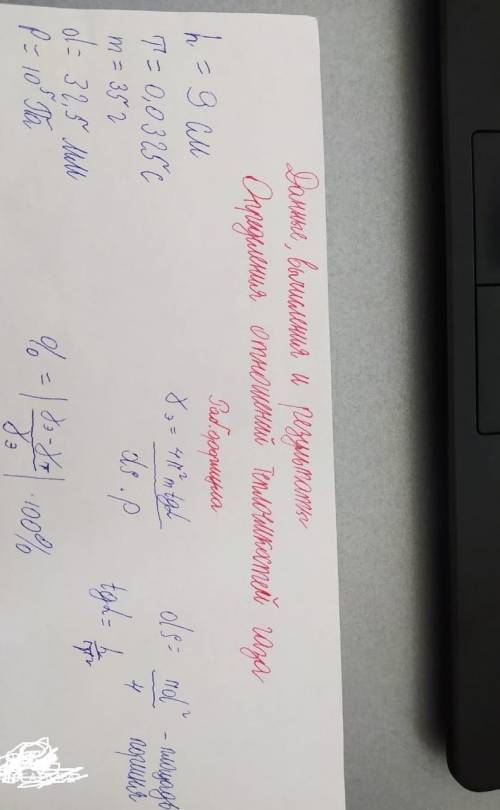 Данные, вычисления и результаты
Определения отношений теплоёмкостей газа
h = 9 см
T = 0,0325 с
m = 35 г
d = 32,5 мм
P = 10⁵ Па
Раб. формула
γэ = 4π² m tgα / ds · P
ds = πd² / 4 - площадь поршня
tgα = h/T²
% = |γэ - γт / γэ| · 100%